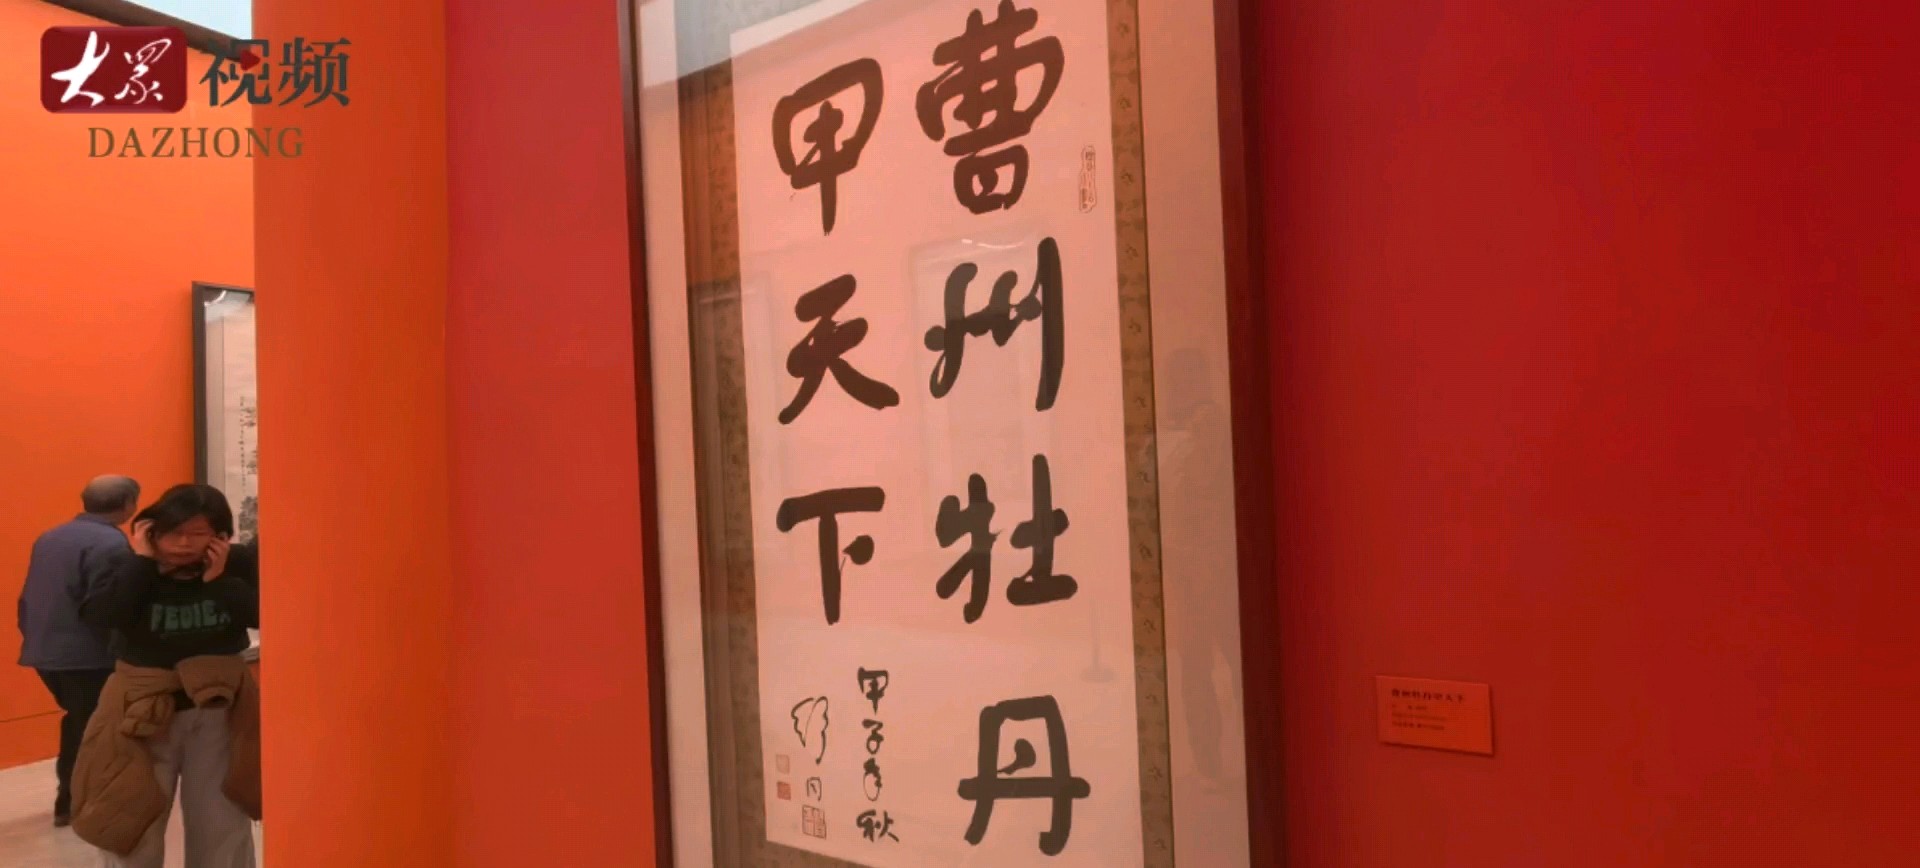 大眾 视频
DAZHONG
曹州牡丹
甲天下
甲子年秋
舒同
曹州牡丹甲天下